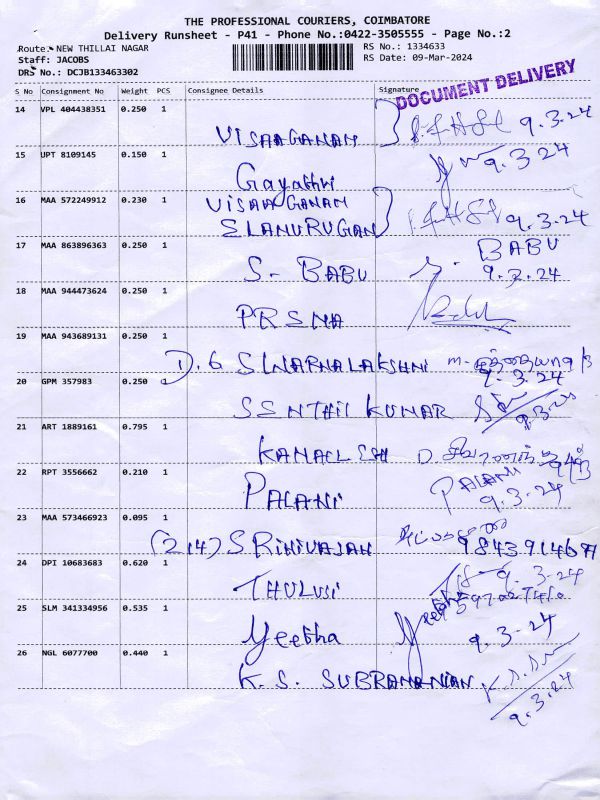 THE PROFESSIONAL COURIERS, COIMBATORE
Delivery Runsheet - P41 - Phone No.:0422-3505555 - Page No.:2
Route: NEW THILLAI NAGAR
RS No.: 1334633
Staff: JACOBS
RS Date: 09-Mar-2024
DRS No.: DCJB133463302
DOCUMENT DELIVERY
S No Consignment No Weight PCS Consignee Details Signature
14 VPL 404438351 0.250 1
VISAAGANAM 9.3.24
15 UPT 8109145 0.150 1
Gayathri 9.3.24
16 MAA 572249912 0.230 1
VISAA GANAM
ELANURUGAN 9.3.24
17 MAA 863896363 0.250 1
S- BABU S. BABU
9.3.24
18 MAA 944473624 0.250 1
PRSNA
19 MAA 943689131 0.250 1
D.G SWARNALAKSHNI
9.3.24
20 GPM 357983 0.250 1
SSNTHIL KUNAR
21 ART 1889161 0.795 1
22 RPT 3556662 0.210 1
PALANI PALANI
9.3.24
23 MAA 573466923 0.095 1
(214) SRINIVAJAN
24 DPI 10683683 0.620 1
THULUSI 9.3.24
25 SLM 341334956 0.535 1
9.3-24
26 NGL 6077700 0.440 1
K.S. SUBRANANIAN
9.3.24